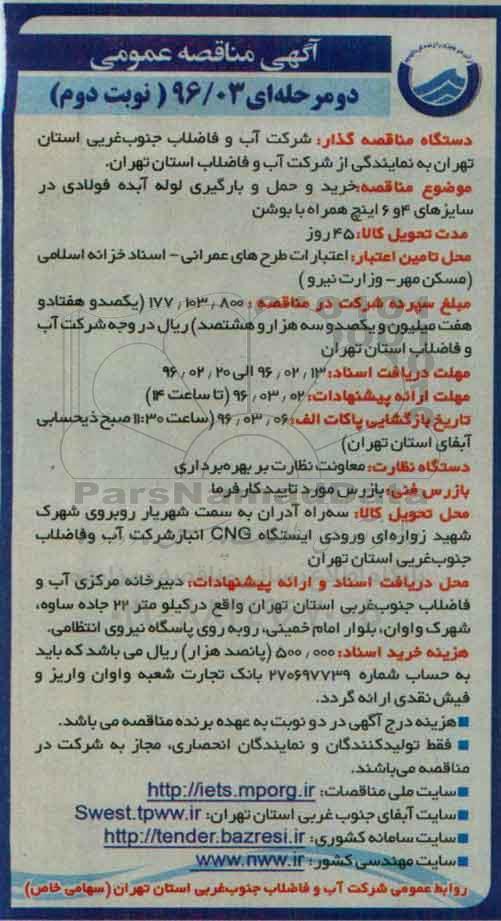 آگهی مناقصه عمومی
دو مرحله‌ای ۹۶/۰۳ ( نوبت دوم)
دستگاه مناقصه گذار: شرکت آب و فاضلاب جنوب‌غربی استان
تهران به نمایندگی از شرکت آب و فاضلاب استان تهران.
موضوع مناقصه:خرید و حمل و بارگیری لوله آبده فولادی در
سایزهای ۴و ۶ اینچ همراه با بوشن
مدت تحویل کالا: ۴۵ روز
محل تامین اعتبار: اعتبارات طرح های عمرانی - اسناد خزانه اسلامی
(مسکن مهر- وزارت نیرو )
مبلغ سپرده شرکت در مناقصه : ۱۷۷٫۱۰۳٫۸۰۰ (یکصدو هفتادو
هفت میلیون و یکصدو سه هزار و هشتصد) ریال در وجه شرکت آب
و فاضلاب استان تهران
مهلت دریافت اسناد: ۹۶٫۰۲٫۱۳ الی ۹۶٫۰۲٫۲۰
مهلت ارائه پیشنهادات: ۹۶٫۰۳٫۰۲ (تا ساعت ۱۴)
تاریخ بازگشایی پاکات الف: ۹۶٫۰۳٫۰۶ (ساعت ۱۱:۳۰ صبح ذیحسابی
آبفای استان تهران)
دستگاه نظارت: معاونت نظارت بر بهره‌برداری
بازرس فنی: بازرس مورد تایید کارفرما
محل تحویل کالا: سه‌راه آدران به سمت شهریار روبروی شهرک
شهید زواره‌ای ورودی ایستگاه CNG انبار شرکت آب وفاضلاب
جنوب‌غربی استان تهران
محل دریافت اسناد و ارائه پیشنهادات: دبیرخانه مرکزی آب و
فاضلاب جنوب‌غربی استان تهران واقع درکیلو متر ۲۲ جاده ساوه،
شهرک واوان، بلوار امام خمینی، روبه روی پاسگاه نیروی انتظامی.
هزینه خرید اسناد: ۵۰۰٫۰۰۰ (پانصد هزار) ریال می باشد که باید
به حساب شماره ۲۷۰۶۹۷۷۳۹ بانک تجارت شعبه واوان واریز و
فیش نقدی ارائه گردد.
■ هزینه درج آگهی در دو نوبت به عهده برنده مناقصه می باشد.
■ فقط تولیدکنندگان و نمایندگان انحصاری، مجاز به شرکت در
مناقصه می‌باشند.
■ سایت ملی مناقصات: http://iets.mporg.ir
■ سایت آبفای جنوب غربی استان تهران: Swest.tpww.ir
■ سایت سامانه کشوری: http://tender.bazresi.ir
■ سایت مهندسی کشور: www.nww.ir
روابط عمومی شرکت آب و فاضلاب جنوب‌غربی استان تهران (سهامی خاص)